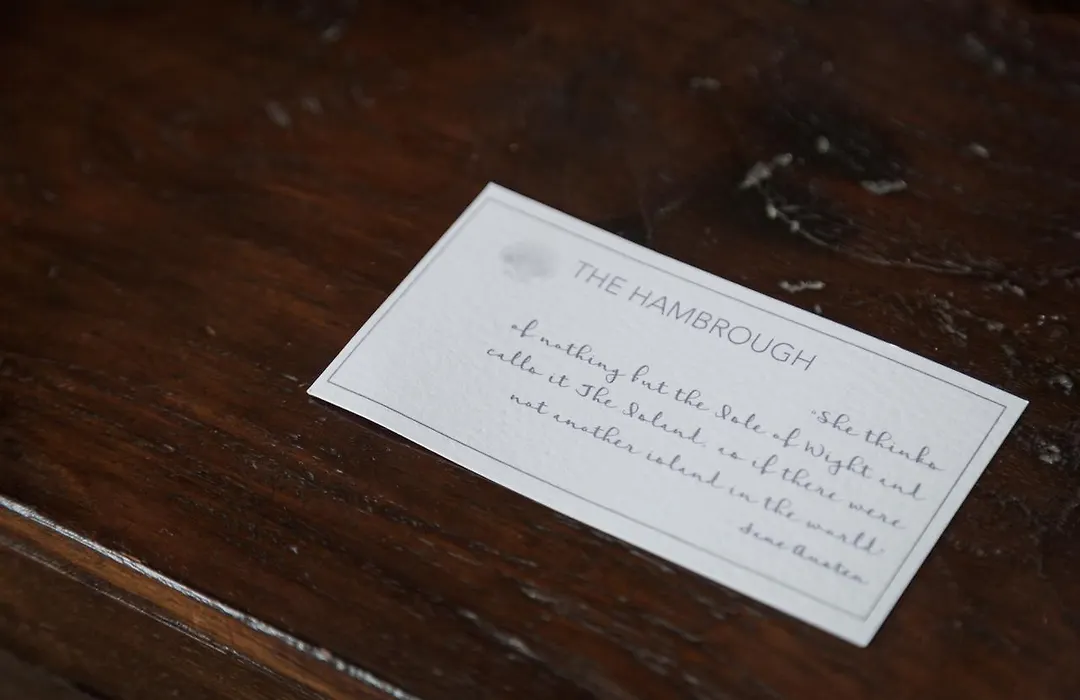 THE HAMBROUGH
"She thinks
of nothing but the Isle of Wight and
calls it The Island, as if there were
not another island in the world."
Jane Austen